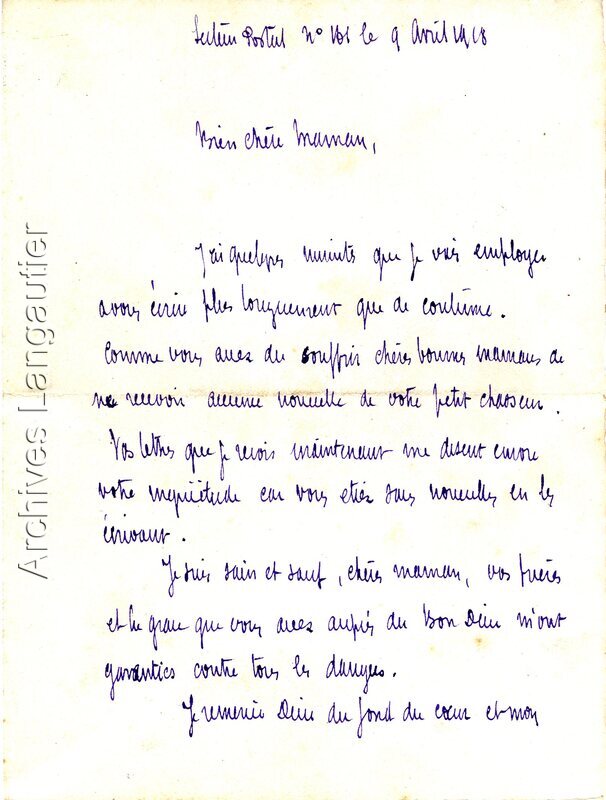 Secteur Postal n° 161 le 9 Avril 1918
Bien chère Maman,
J'ai quelques minutes que je vais employer
a vous écrire plus longuement que de coutume.
Comme vous avez du souffrir chères bonnes mamans de
ne recevoir aucune nouvelle de votre petit chasseur.
Vos lettres que je reçois maintenant me disent encore
votre inquiétude car vous etiez sans nouvelles en les
écrivant.
Je suis sain et sauf, chères maman, vos prières
et la grace que vous avez auprès du Bon Dieu m'ont
garanties contre tous les dangers.
Je remercie Dieu du fond du cœur et mon
Archives Langautier